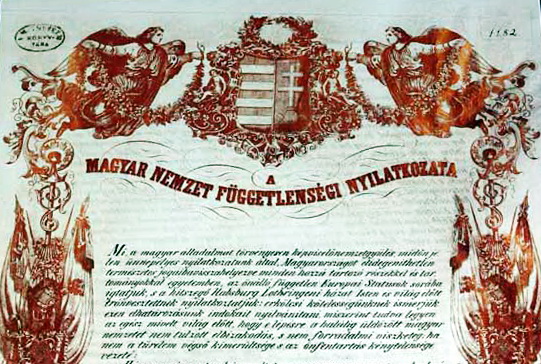 1182
A
MAGYAR NEMZET FÜGGETLENSÉGI NYILATKOZATA
Mi, a magyar álladalmat törvényesen képviselő nemzetgyűlés, midőn je-
len ünnepélyes nyilatkozatunk által, Magyarországot elidegeníthetlen
természetes jogaiba visszahelyezve minden hozzá tartozó részekkel és tar-
tományokkal egyetemben, az önálló független Európai Statusok sorába
igtatjuk, s a hitszegő Habsburg Lothringeni házat Isten és világ előtt
trónvesztettnek nyilatkoztatjuk: erkölcsi kötelességünknek ismerjük
ezen elhatározásunk indokait nyilvánítani, miszerint tudva legyen
az egész mivelt világ előtt, hogy e lépésre a halálig üldözött magyar
nemzetet nem túlzott elbizakodás, s nem forradalmi viszketeg, ha
nem a türelem végső kimerültsége s az önfentartás kénytelensége
vezeté.